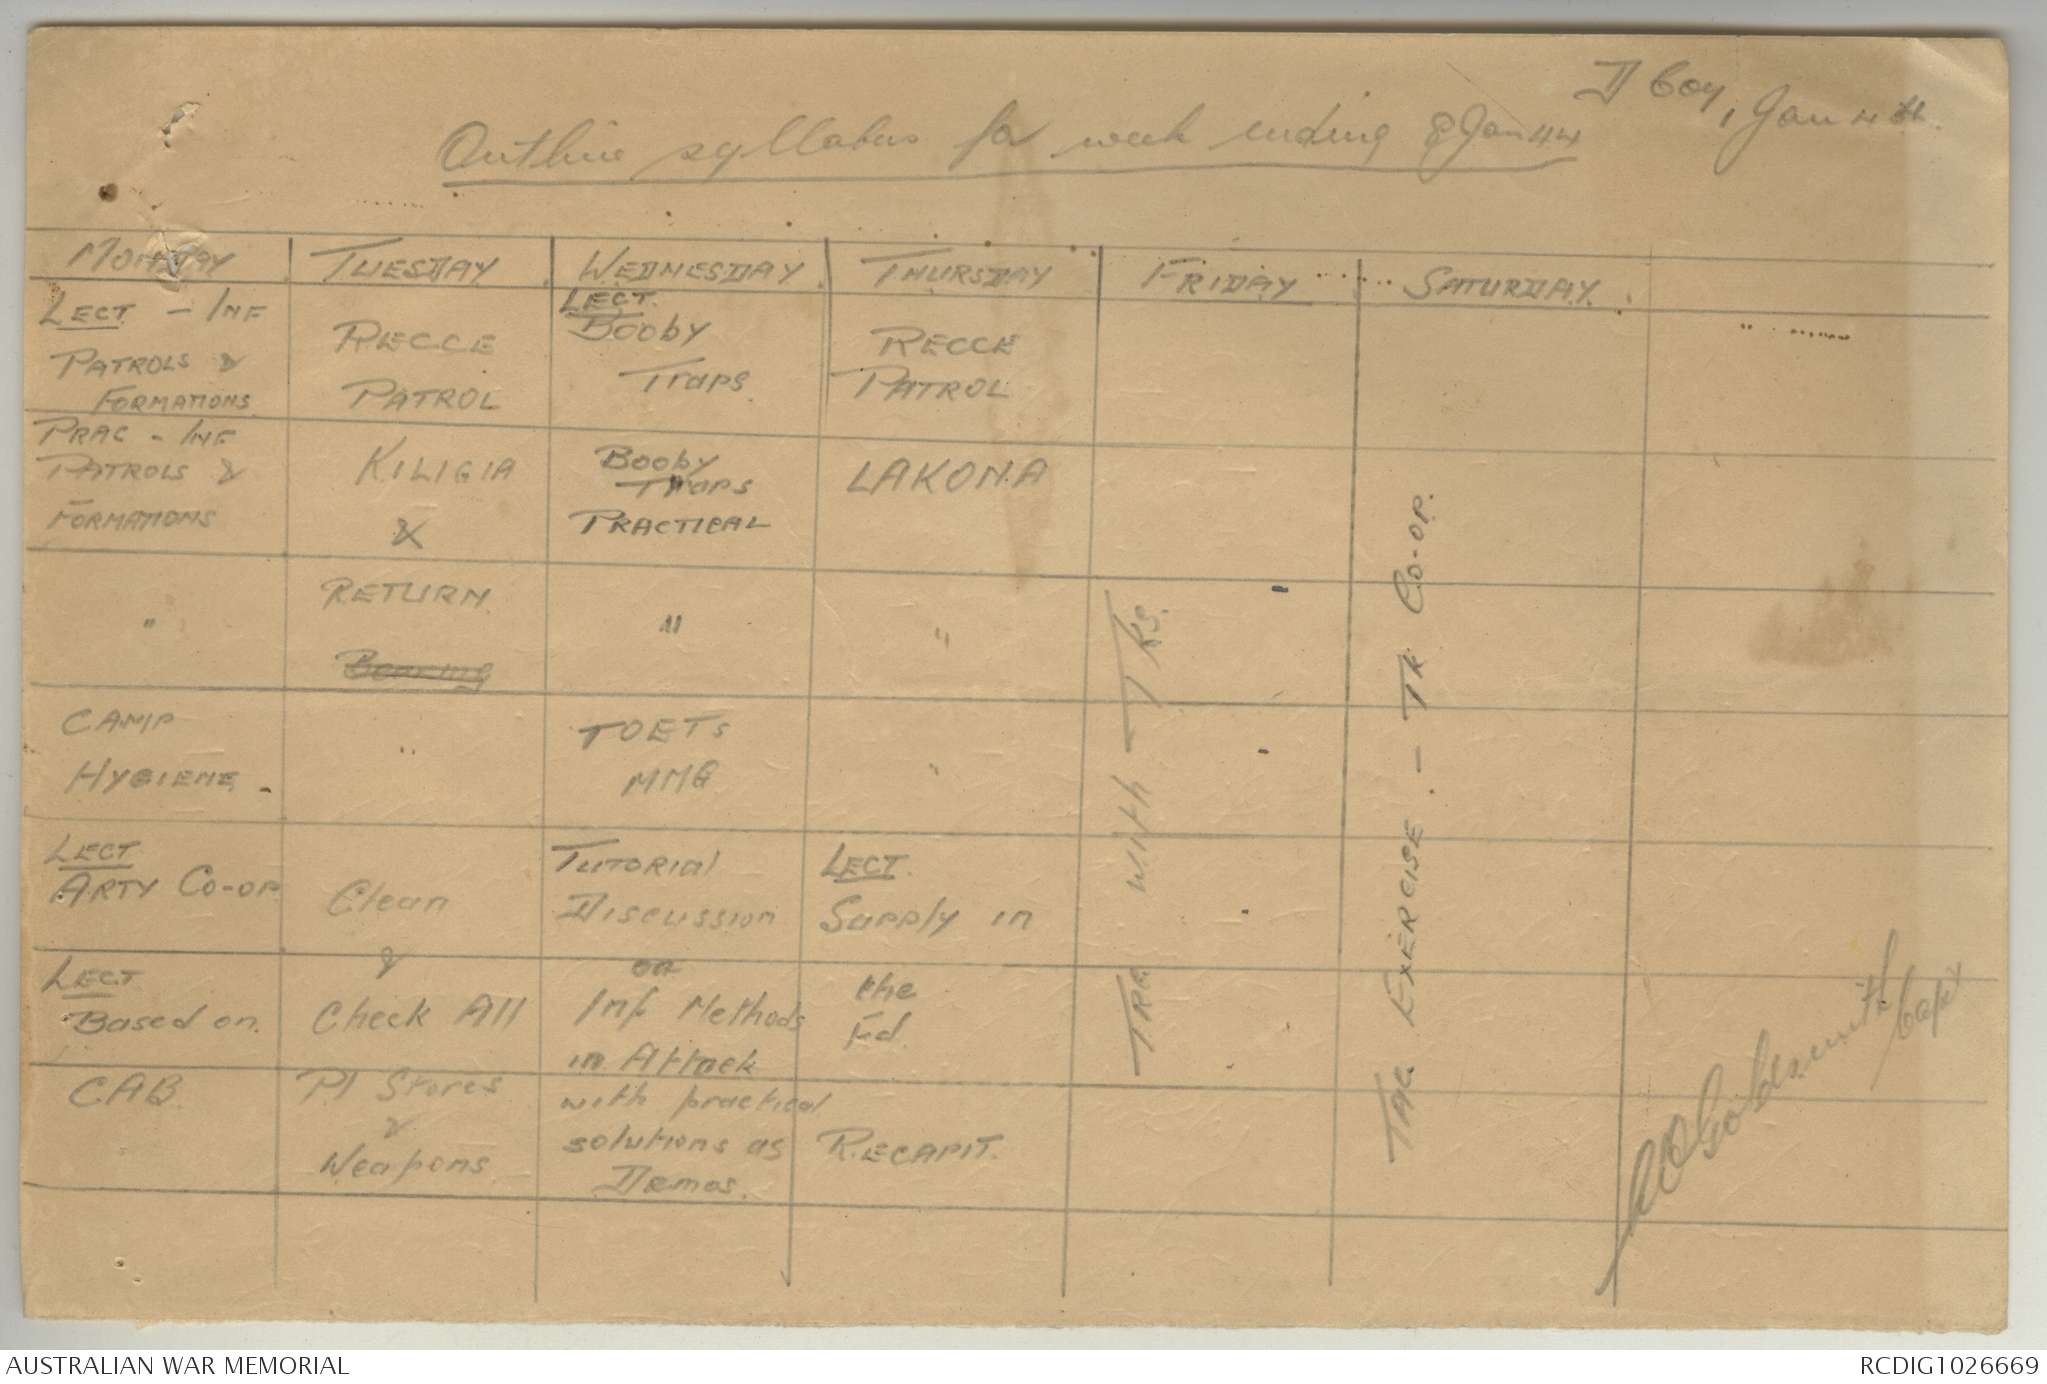 D Coy, Jan 4th.
Outline syllabus for week ending 8 Jan 44
MONDAY TUESDAY WEDNESDAY THURSDAY FRIDAY SATURDAY
LECT - INF
PATROLS &
FORMATIONS.
PRAC - INF
PATROLS &
FORMATIONS
"
CAMP
HYGIENE
LECT
ARTY CO-OP
LECT
Based on.
CAB
RECCE
PATROL
KILIGIA
&
RETURN
"
Clean
&
Check All
Pl Stores
&
Weapons
LECT.
Booby
Traps
Booby
Traps
PRACTICAL
"
TOETs
MMG
Tutorial
Discussion
or
Inf Methods
in Attack
with practical
solutions as
Demos.
RECCE
PATROL
LAKONA
"
"
LECT.
Supply in
the
Fd.
RECAPIT.
TRG with TKs.
TAC EXERCISE. - TK CO-OP.
Goldsmith Capt
AUSTRALIAN WAR MEMORIAL
RCDIG1026669